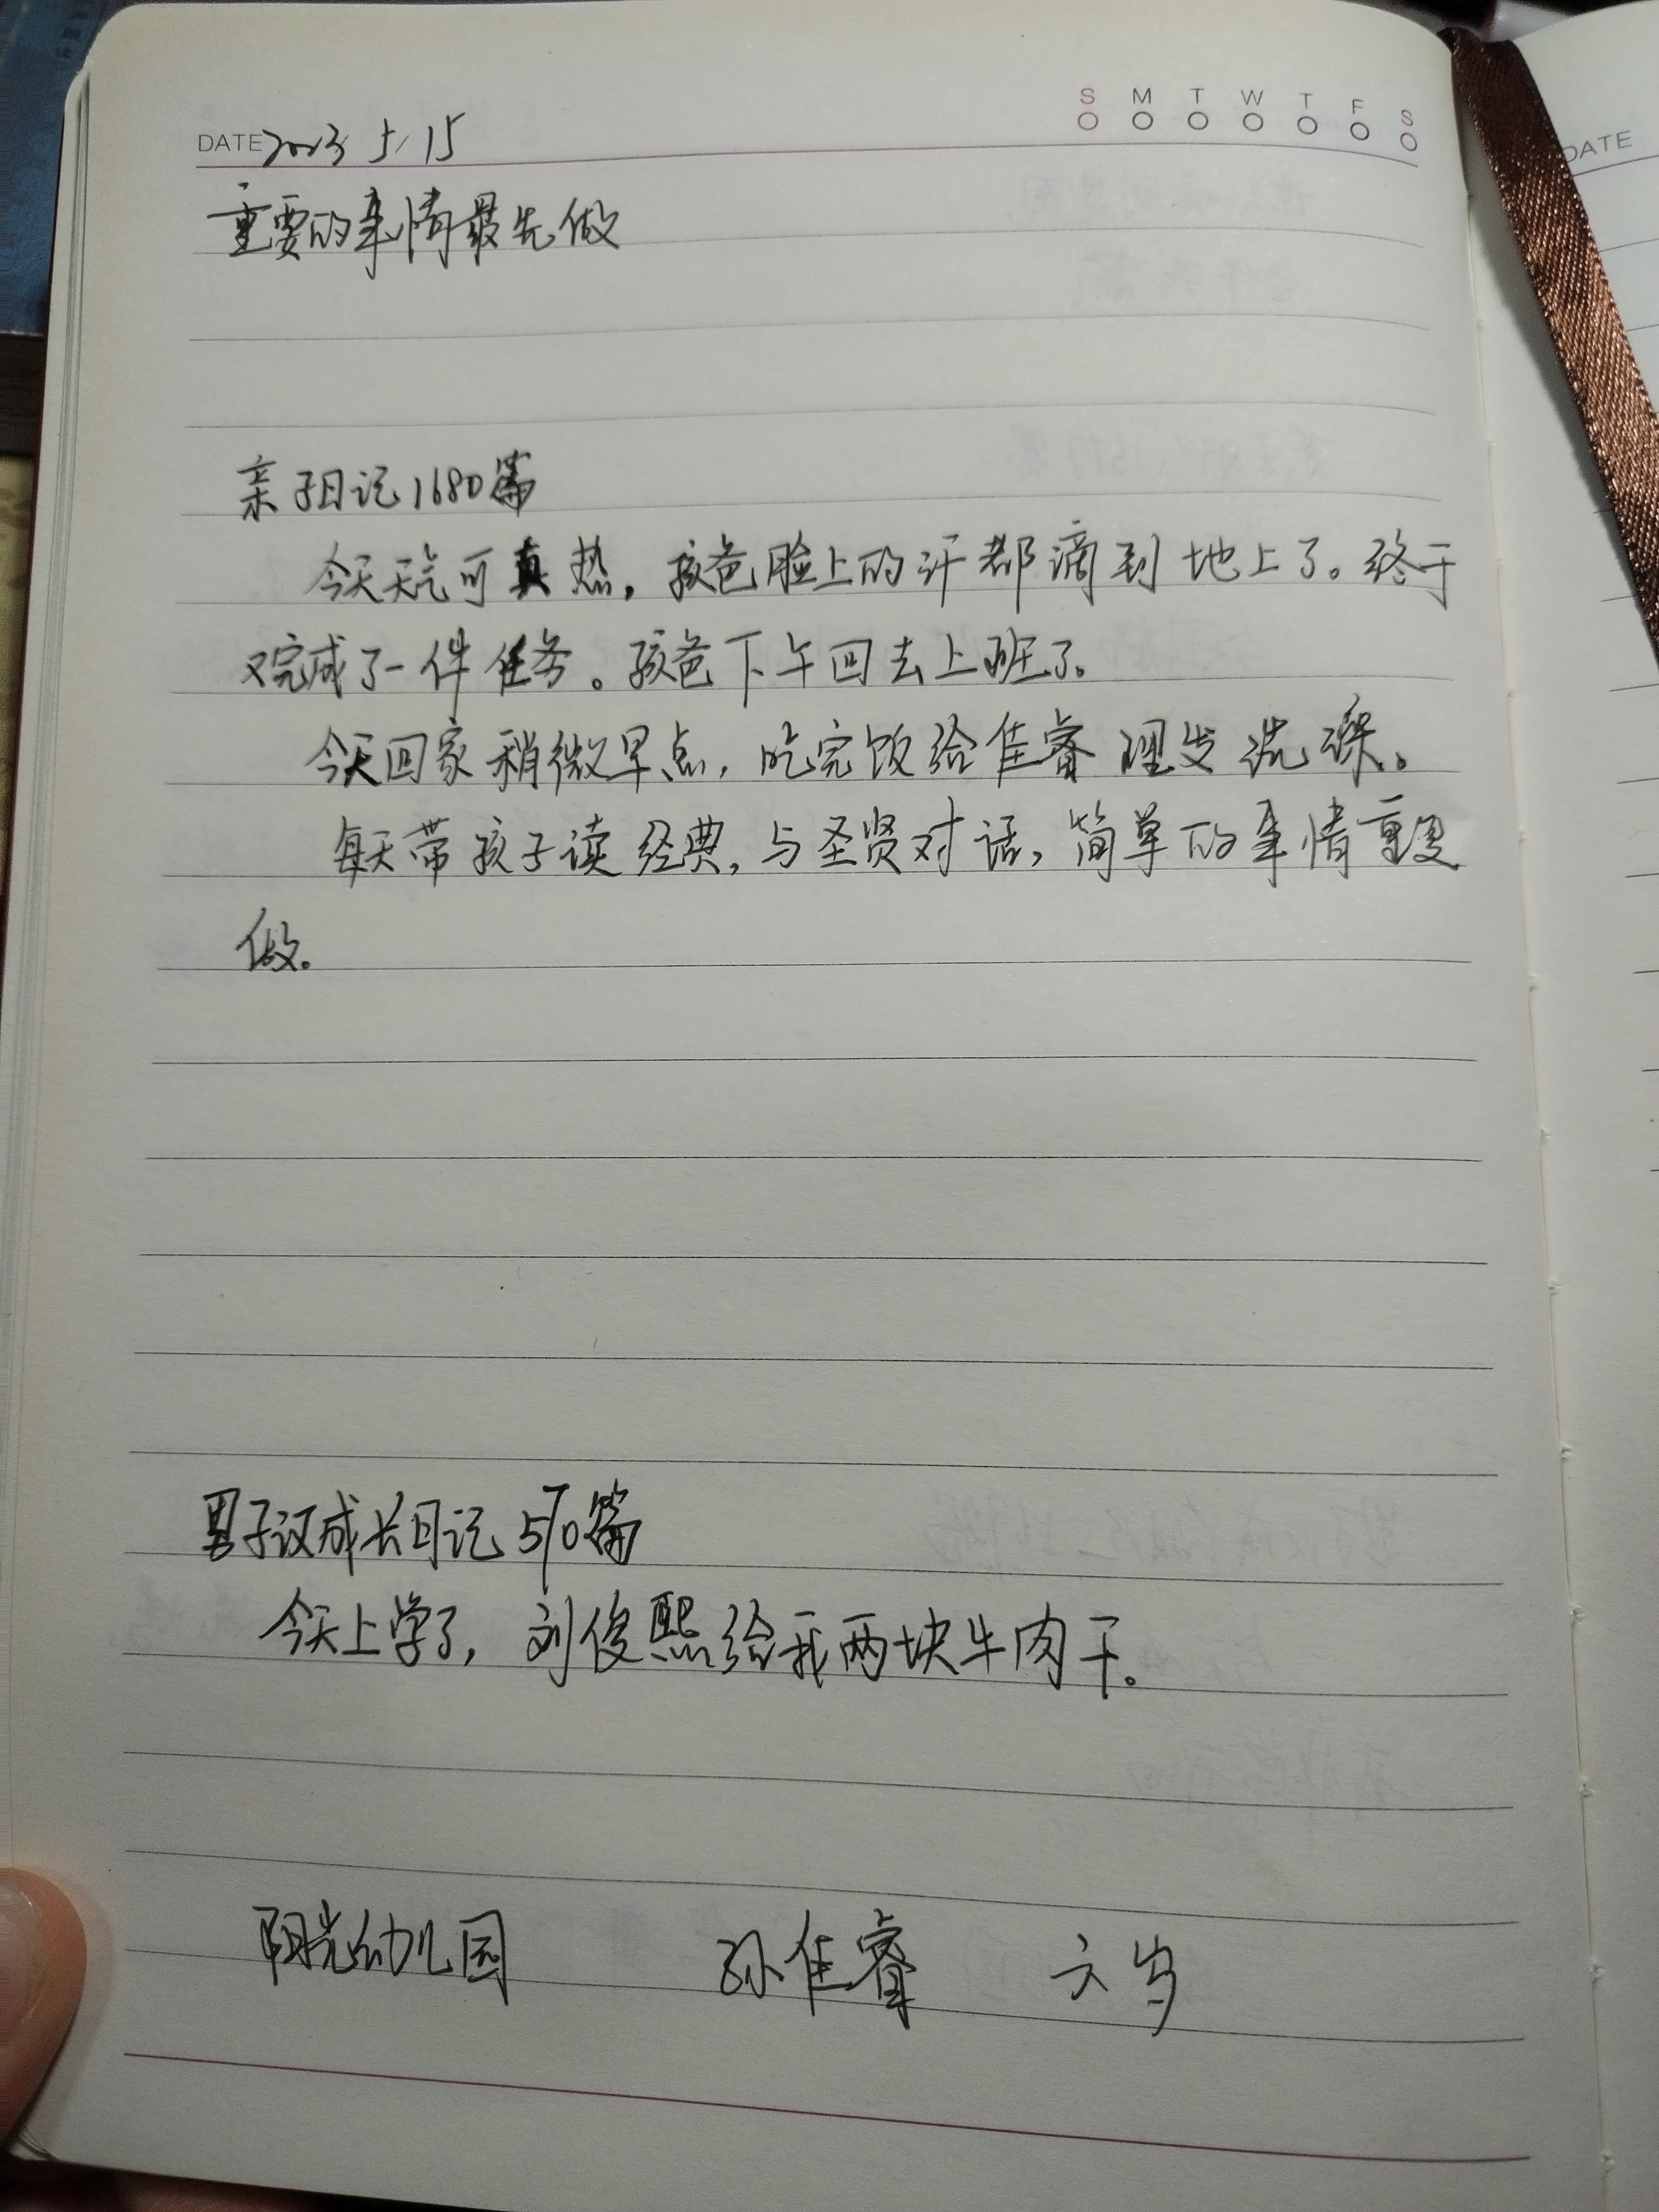 S M T W T F S
DATE 2023 5/15
DATE
重要的事情最先做
亲子日记1680篇
今天天气可真热，孩爸脸上的汗都滴到地上了。终于
又完成了一件任务。孩爸下午回去上班了。
今天回家稍微早点，吃完饭给佳睿理发洗澡。
每天带孩子读经典，与圣贤对话，简单的事情重复
做。
男子汉成长日记570篇
今天上学了，刘俊熙给我两块牛肉干。
阳光幼儿园 孙佳睿 六岁